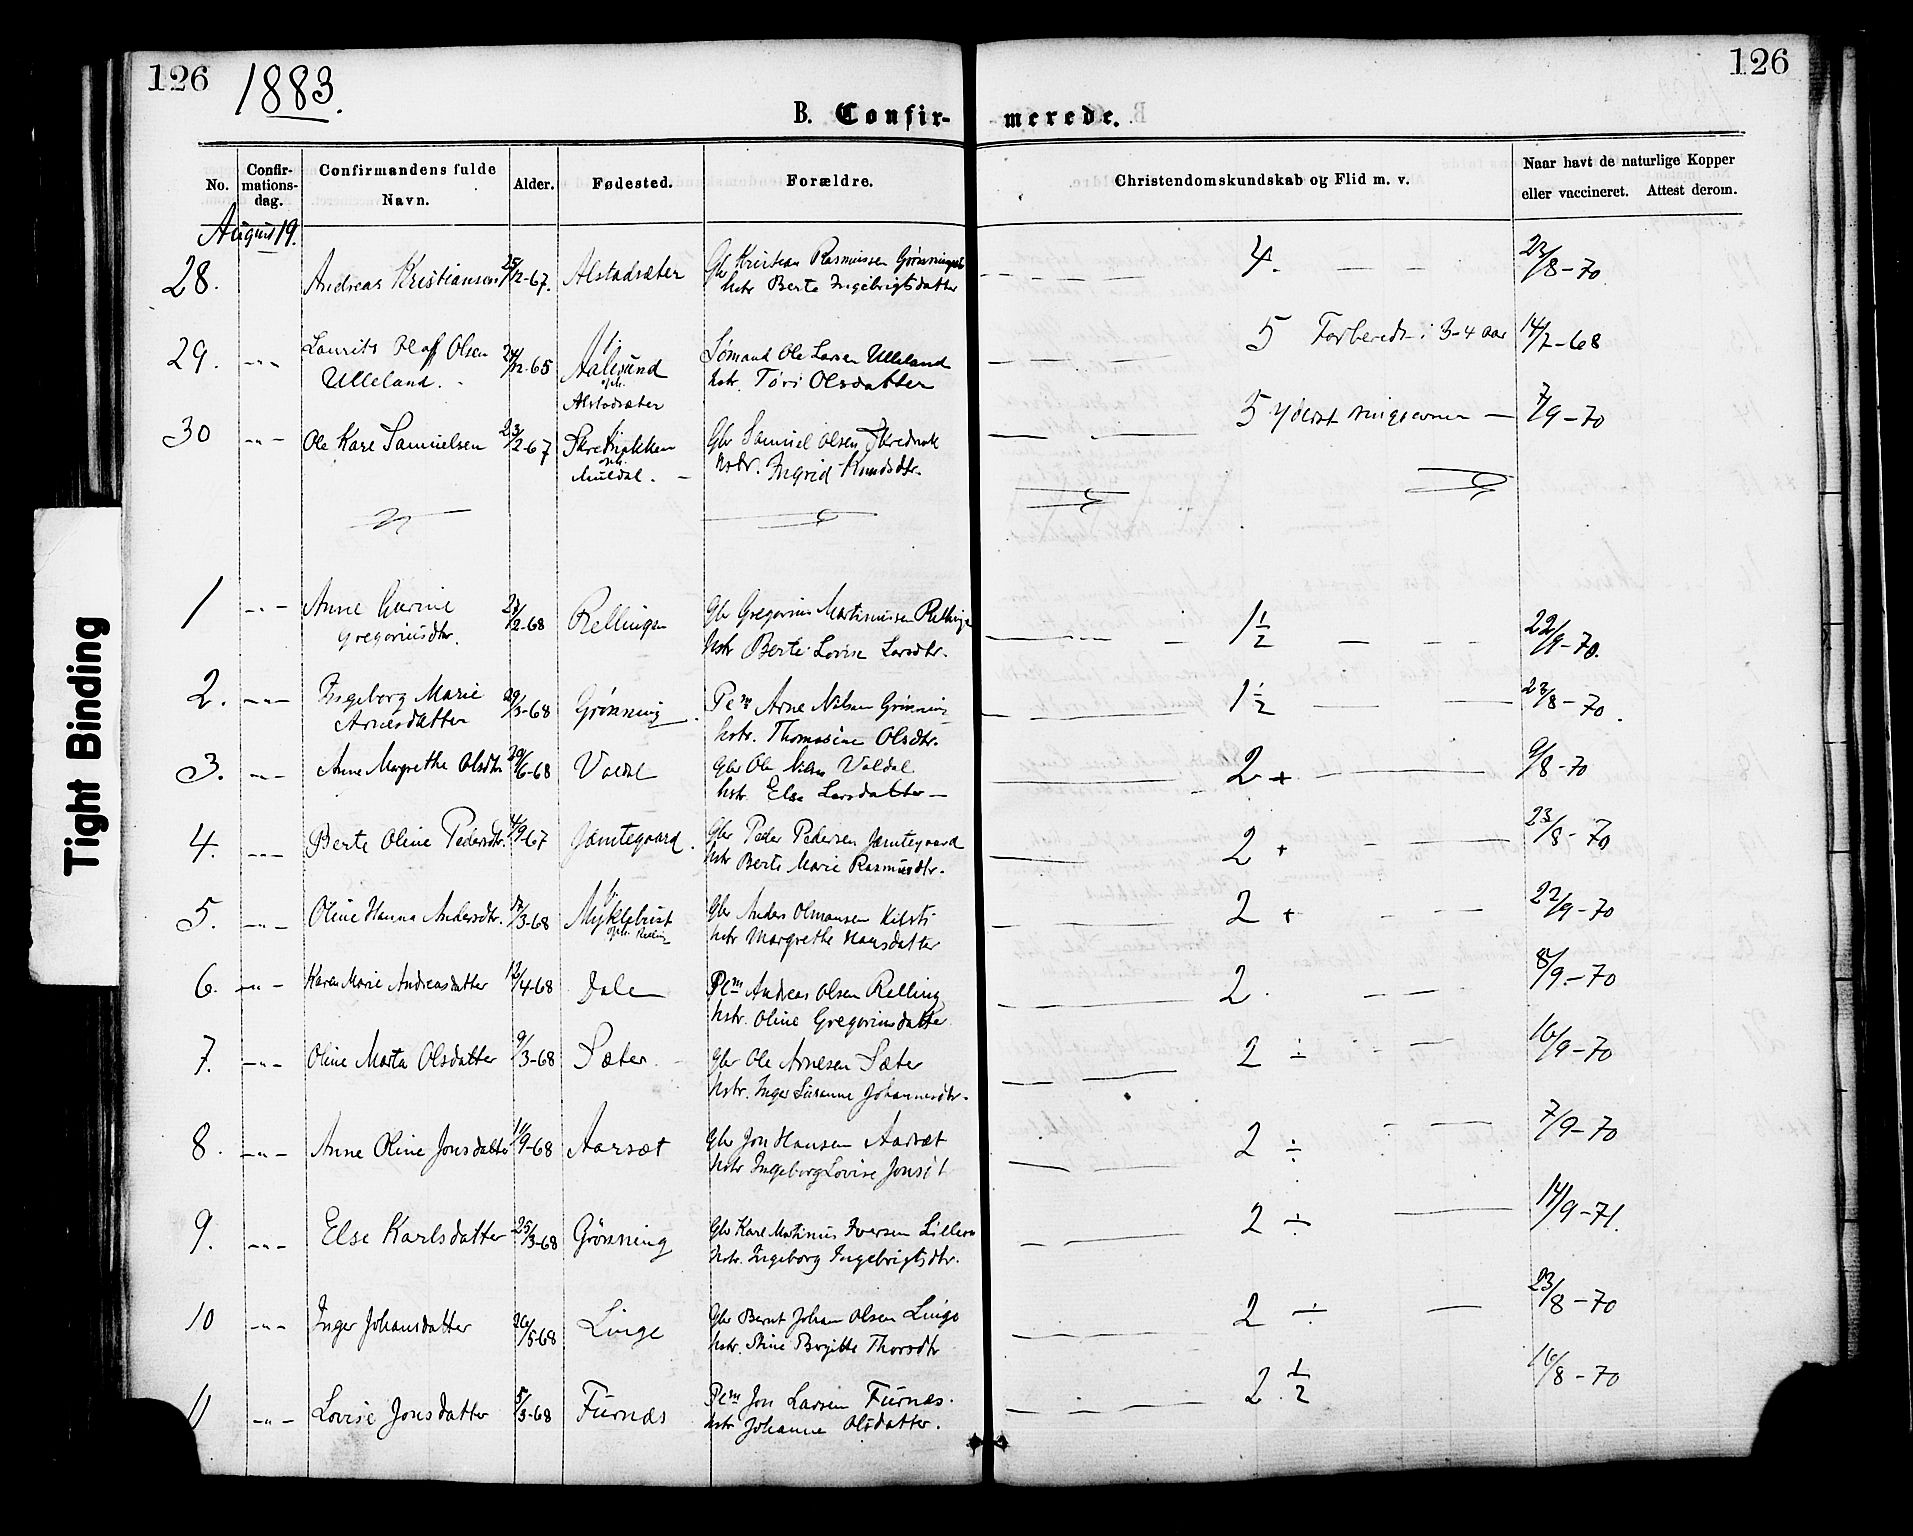 126 1883. 126
B. Confir- merede.
No. Confir-mations-dag. Confirmandens fulde Navn. Alder. Fødested. Forældre. Christendomskundskab og Flid m. v. Naar havt de naturlige Kopper eller vaccineret. Attest derom.
August 19.
28. Andreas Kristiansen 25/12-67. Alstadsæter Gbr Kristian Rasmussen 4. 23/8-70.
hstr Berte Ingebrigtsdatter
29. -"- Laurits Olaf Olsen 24/12-65 f. Aalesund Sømand Ole Larsen Ulleland 5 Forberedt i 3-4 aar 14/7-68
Ulleland. opdr. Alstadsæter hstr. Tøri Olsdatter
30 -"- Ole Kare Samuelsen 23/2-67 f. Gbr Samuel Olsen 5 yderst ringe evner 7/9-70
Muldal. hstr. Ingrid Knudsdtr.
1 -"- Anne 2-68 Rellingen Gbr Gregorius Martinussen Relling 1 1/2 22/9-70.
Gregoriusdtr. hstr Berte Lovise Larsdtr.
2. -"- Ingeborg Marie 29/3-68 Grønning Plm Arne Nilsen Grønning 1 1/2 23/8-70.
Arnesdatter hstr. Thomasine Olsdtr.
3. -"- Anne Margrethe Olsdtr 29/6-68 Valdal Gbr Ole Nilsen Valdal 2 + 9/8-70
hstr. Else Larsdatter
4. -"- Berte Oline Pedersdtr. 4/9-67 Jamtegaard. Gbr Peder Pedersen Jamtegaard 2 + 23/8-70
hstr Berte Marie Rasmusdtr.
5. -"- Oline Hanna Andersdtr. 3-68 f. Myklebust Gbr Anders Olmansen Kilsti 2 + 22/9-70
opdr. Relling hstr Margrethe Hansdatter
6. -"- Karen Marie Andreasdatter 12/4-68 Dale Plm Andreas Olsen Relling 2. 8/9-70
hstr. Oline Gregoriusdatter
7. -"- Oline Marta Olsdatter 9/3-68 Sæter Gbr Ole Arnesen Sæter 2 ÷ 16/9-70
hstr. Inger Susanne Johannesdtr.
8. -"- Anne Oline Jonsdatter 11/9-68 Aarsæt Gbr Jon Hansen Aarsæt 2 ÷ 7/9-70
hstr Ingeborg Lovise Jonsdt
9. -"- Else Karlsdatter 25/3-68 Grønning Gbr Karl Martinus Iversen 2 ÷ 14/9-71.
hstr. Ingeborg Ingebrigtsdtr.
10 -"- Inger Johansdatter 26/5-68 Linge Gbr Bernt Johan Olsen Linge 2 ÷ 23/8-70
hstr. Stine Birgitte Thorsdtr
11 -"- Lovise Jonsdatter 5/3-68 Furnæs Plm Jon Larsen Furnæs. 2 1/2 16/8-70
hstr Johanne Olsdatter.
Tight Binding